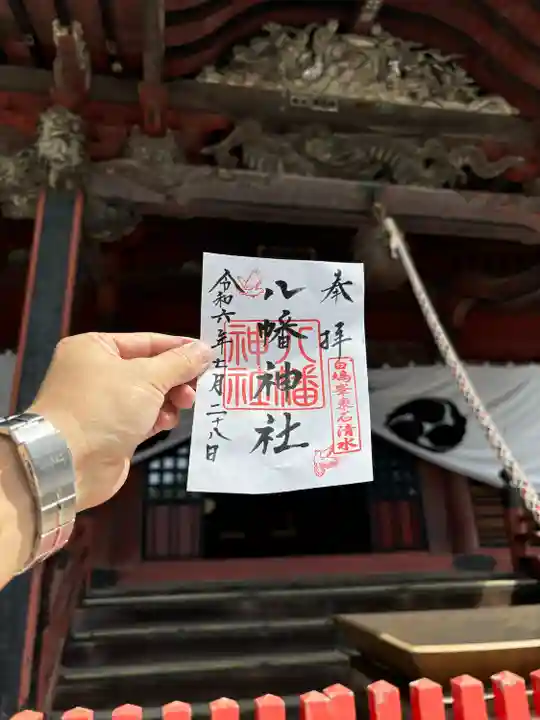 奉拝
白鳩峯東石清水
八幡神社
八幡
神社
令和六年七月二十八日